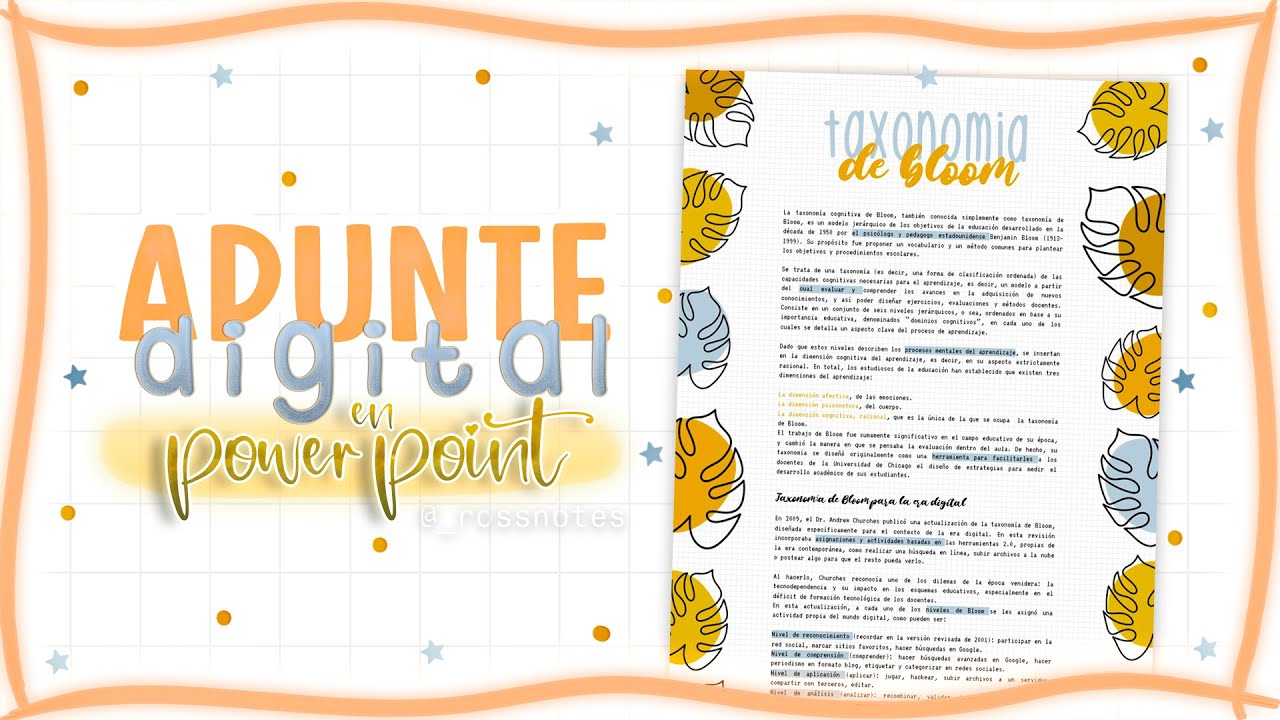 APUNTE
digital
en
powerpoint
@_rcssnotes
taxonomia
de bloom
La taxonomía cognitiva de Bloom, también conocida simplemente como taxonomía de
Bloom, es un modelo jerárquico de los objetivos de la educación desarrollado en la
década de 1950 por el psicólogo y pedagogo estadounidense Benjamin Bloom (1913-
1999). Su propósito fue proponer un vocabulario y un método comunes para plantear
los objetivos y procedimientos escolares.
Se trata de una taxonomía (es decir, una forma de clasificación ordenada) de las
capacidades cognitivas necesarias para el aprendizaje, es decir, un modelo a partir
del cual evaluar y comprender los avances en la adquisición de nuevos
conocimientos, y así poder diseñar ejercicios, evaluaciones y métodos docentes.
Consiste en un conjunto de seis niveles jerárquicos, o sea, ordenados en base a su
importancia educativa, denominados “dominios cognitivos”, en cada uno de los
cuales se detalla un aspecto clave del proceso de aprendizaje.
Dado que estos niveles describen los procesos mentales del aprendizaje, se insertan
en la dimensión cognitiva del aprendizaje, es decir, en su aspecto estrictamente
racional. En total, los estudiosos de la educación han establecido que existen tres
dimensiones del aprendizaje:
La dimensión afectiva, de las emociones.
La dimensión psicomotora, del cuerpo.
La dimensión cognitiva, racional, que es la única de la que se ocupa la taxonomía
de Bloom.
El trabajo de Bloom fue sumamente significativo en el campo educativo de su época,
y cambió la manera en que se pensaba la evaluación dentro del aula. De hecho, su
taxonomía se diseñó originalmente como una herramienta para facilitarles a los
docentes de la Universidad de Chicago el diseño de estrategias para medir el
desarrollo académico de sus estudiantes.
Taxonomía de Bloom para la era digital
En 2009, el Dr. Andrew Churches publicó una actualización de la taxonomía de Bloom,
diseñada específicamente para el contexto de la era digital. En esta revisión
incorporaba asignaciones y actividades basadas en las herramientas 2.0, propias de
la era contemporánea, como realizar una búsqueda en línea, subir archivos a la nube
o postear algo para que el resto pueda verlo.
Al hacerlo, Churches reconocía uno de los dilemas de la época venidera: la
tecnodependencia y su impacto en los esquemas educativos, especialmente en el
déficit de formación tecnológica de los docentes.
En esta actualización, a cada uno de los niveles de Bloom se les asignó una
actividad propia del mundo digital, como pueden ser:
Nivel de reconocimiento (recordar en la versión revisada de 2001): participar en la
red social, marcar sitios favoritos, hacer búsquedas en Google.
Nivel de comprensión (comprender): hacer búsquedas avanzadas en Google, hacer
periodismo en formato blog, etiquetar y categorizar en redes sociales.
Nivel de aplicación (aplicar): jugar, hackear, subir archivos a un servidor,
compartir con terceros, editar.
Nivel de análisis (analizar): recombinar,